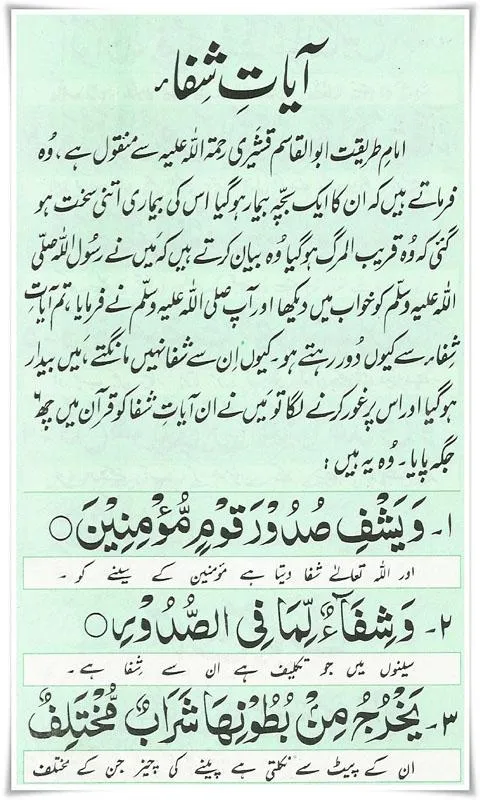 آیاتِ شِفاء
امامِ طریقت ابو القاسم قشیری رحمۃ اللہ علیہ سے منقول ہے ، وُہ
فرماتے ہیں کہ ان کا ایک بچّہ بیمار ہوگیا اس کی بیماری اتنی سخت ہو
گئی کہ وُہ قریب المرگ ہوگیا وُہ بیان کرتے ہیں کہ مَیں نے رسُول اللہ صلّی
اللہ علیہ وسلّم کو خواب میں دیکھا اور آپ صلی اللہ علیہ وسلّم نے فرمایا ، تم آیاتِ
شِفاء سے کیوں دُور رہتے ہو۔ کیوں اِن سے شفا نہیں مانگتے ، مَیں بیدار
ہوگیا اور اس پر غور کرنے لگا تو مَیں نے ان آیاتِ شفا کو قرآن میں چھ ۶
جگہ پایا ۔ وُہ یہ ہیں :
۱۔ وَيَشْفِ صُدُوْرَ قَوْمٍ مُّؤْمِنِيْنَ ○
اور اللہ تعالےٰ شفا دیتا ہے مؤمنین کے سینے کو ۔
۲۔ وَشِفَآءٌ لِّمَا فِی الصُّدُوْرِ ○
سینوں میں جو تکلیف ہے ان سے شِفا ہے ۔
۳۔ يَخْرُجُ مِنْ بُطُوْنِهَا شَرَابٌ مُّخْتَلِفٌ
ان کے پیٹ سے نکلتی ہے پینے کی چیز جن کے مختلف